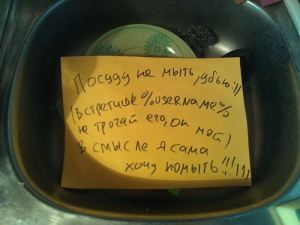 Посуду не мыть, убью!!!
(встретишь %username%
не трогай его, он мой)
в смысле я сама
хочу помыть!!!11)